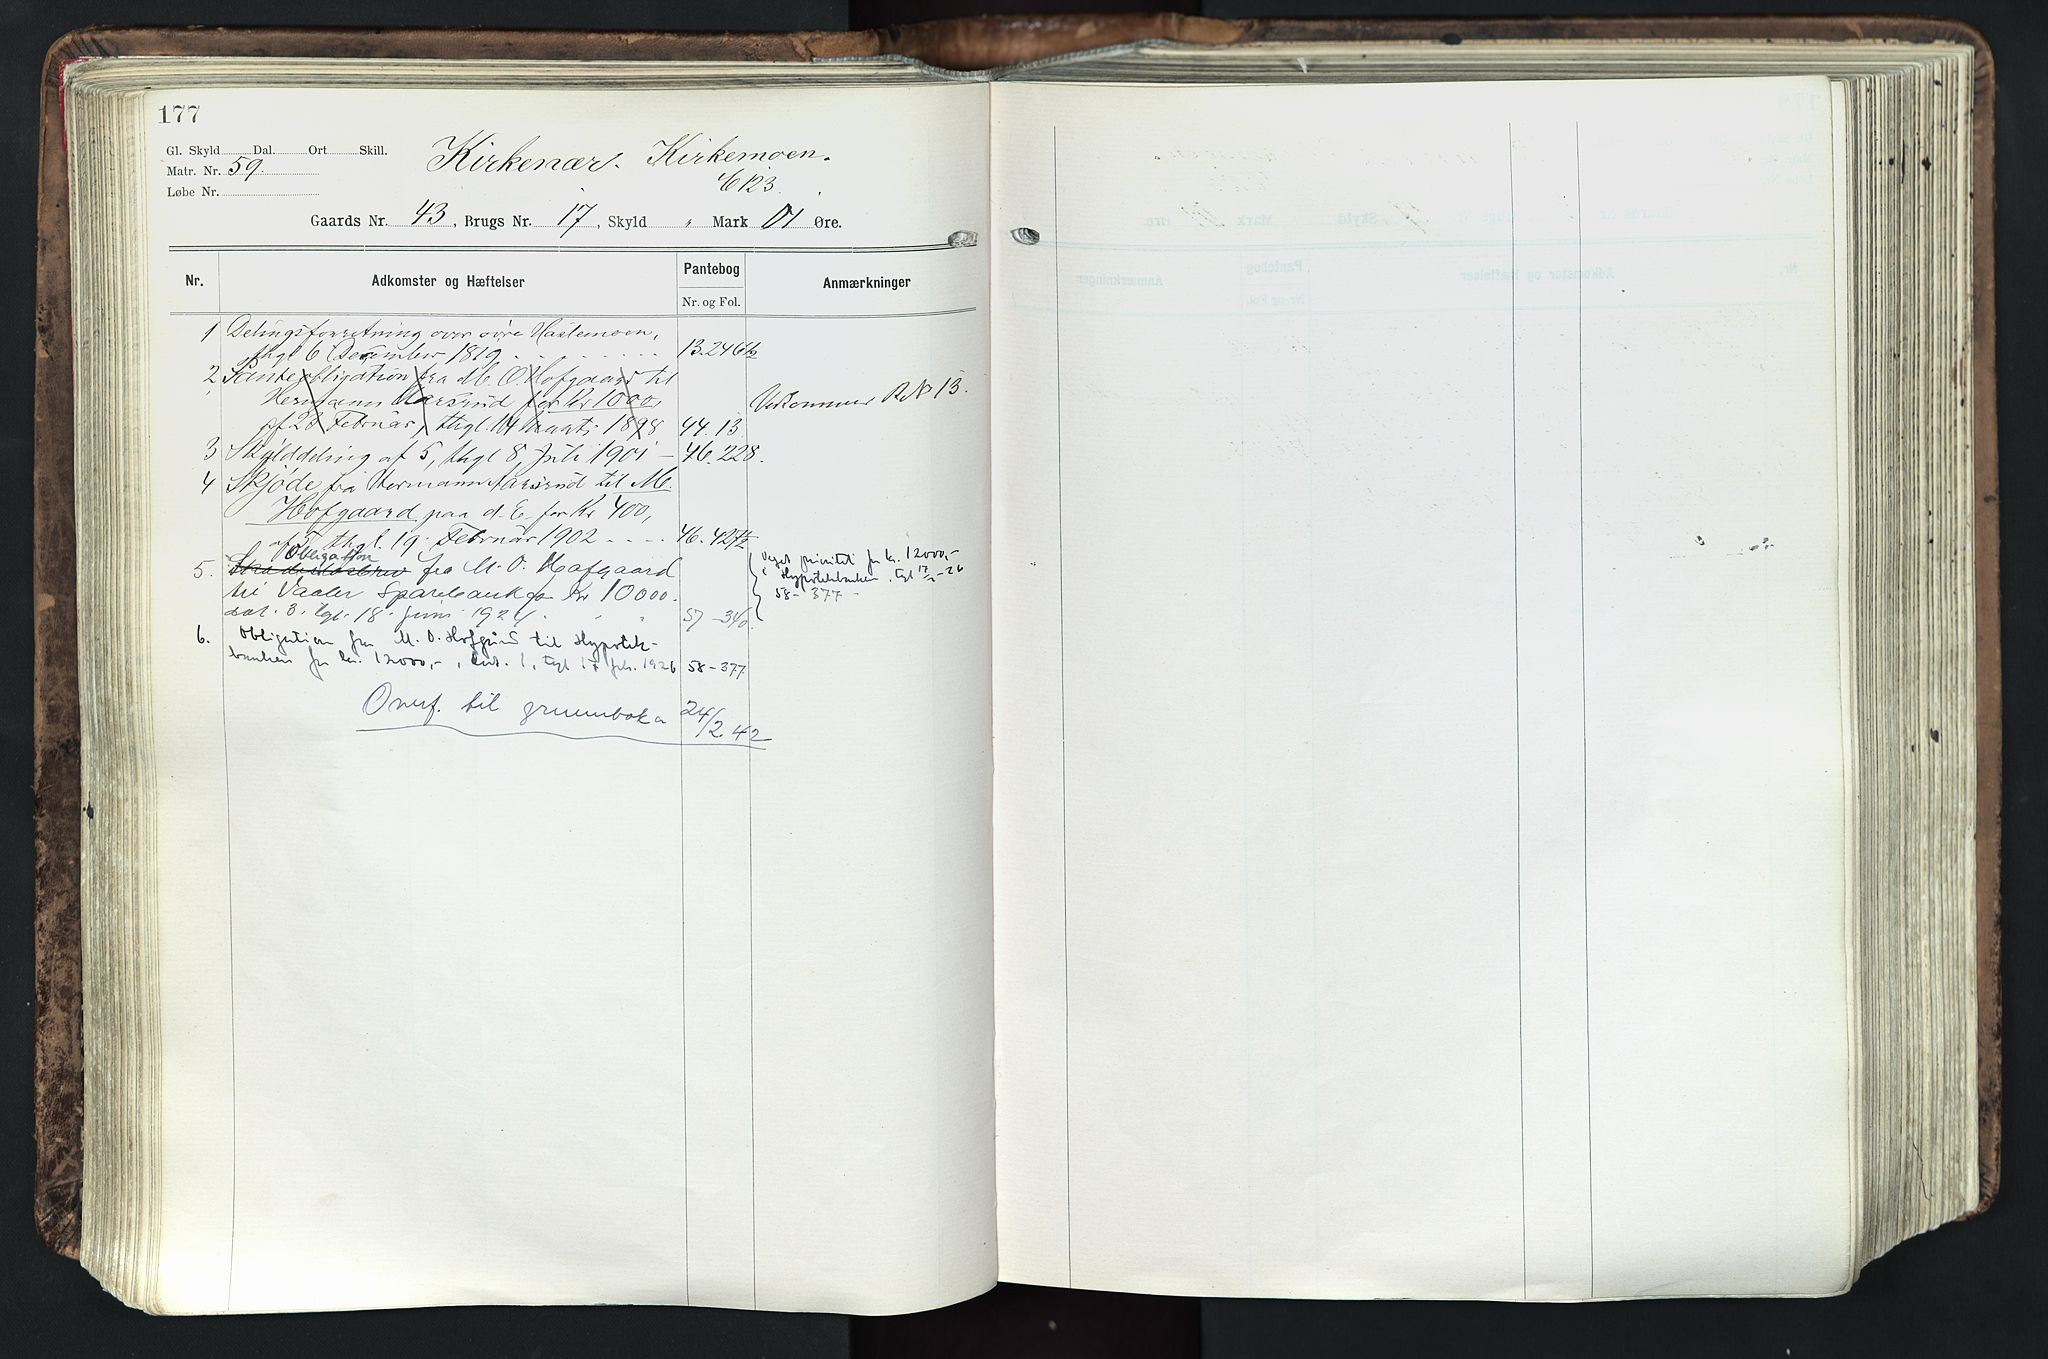 177
Gl. Skyld Dal. Ort Skill.
Matr. Nr. 59.
Løbe Nr.
Kirkenær. Kirkemoen.
Gaards Nr. 43, Brugs Nr. 17, Skyld „ Mark 01 Øre.
Nr. Adkomster og Hæftelser Pantebog Nr. og Fol. Anmærkninger
1 Delingsforretning over søre Hastemoen,
thgl 6 December 1819 . . . . 13.246b
2 Panteobligation fra M. O. Hofgaard til
Hermann Aarsrud for Kr 1000,
af 23 Februar, thgl. 14 Marts 1898 44.13.
Vedkommer B. N 13.
3 Skylddeling af 5, thgl 8 Juli 1901 — 46.228.
4 Skjøde fra Hermann Aarsrud til M.
Hofgaard paa d. E. for Kr 400,
af 5 thgl. 19 Februar 1902 . . . . 46.427b
Obligation
5. fra M. O. Hofgaard
til Vaaler Sparebank for Kr 10000.
dat. 3. tgl. 18. juni 1924. 57-340.
Veget prioritet for kr. 12000,-
t. Hypotekbanken, tgl 17/2-26
58-377-
6. Obligation fra M. O. Hofgaard til Hypotek-
banken for kr. 12000,-, dat. 1, tgl 17 feb. 1926 58-377
Overf. til grunnboka 24/2.42